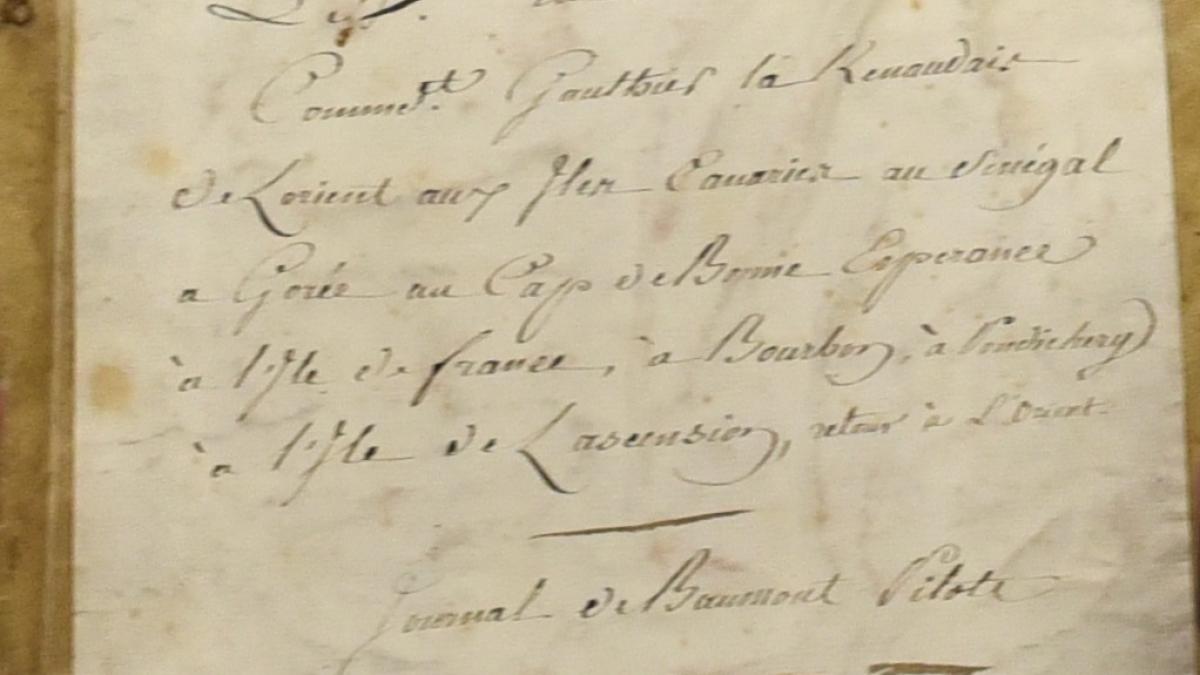 Commdt. Gauthier la Renaudais
de Lorient aux Iles Canaries au Sénégal
a Gorée au Cap de Bonne Esperance
à l'Ile de france, à Bourbon, à Pondichery
à l'Ile de Lascension, retour à L'Orient.
Journal de Baumont Pilote